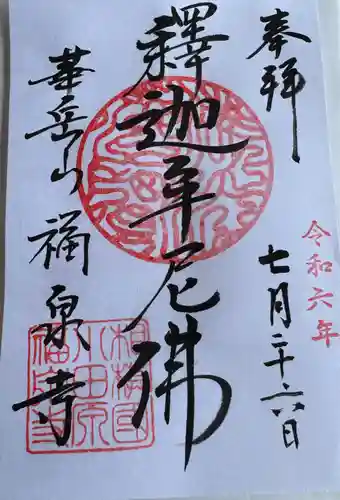 奉拝
令和六年
七月二十六日
釋迦牟尼佛
華岳山
福泉寺
相模国
小田原
福泉寺